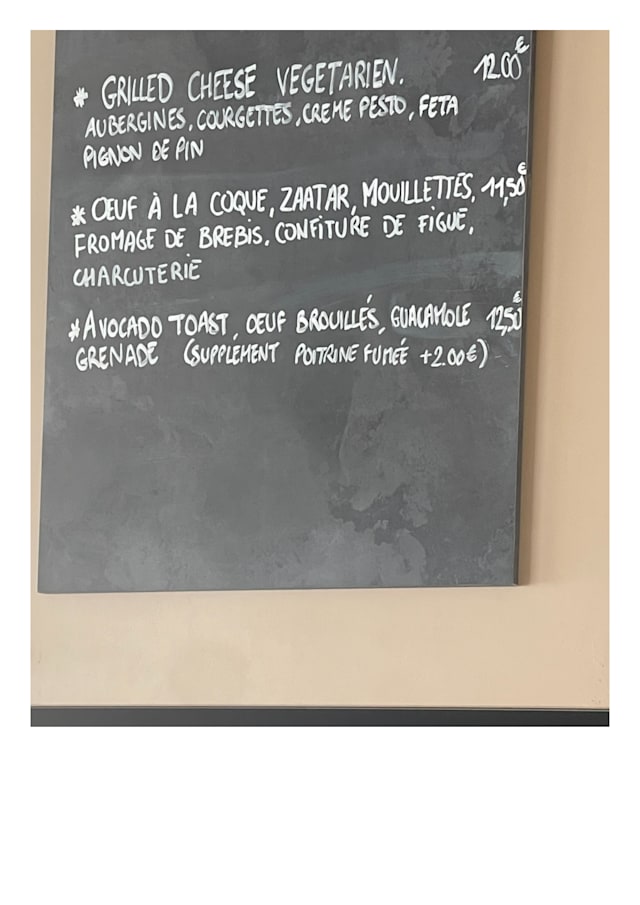 * GRILLED CHEESE VEGETARIEN. 12.00€
AUBERGINES, COURGETTES, CREME PESTO, FETA
PIGNON DE PIN
* ŒUF À LA COQUE, ZAATAR, MOUILLETTES, 11,50€
FROMAGE DE BREBIS, CONFITURE DE FIGUE,
CHARCUTERIE
* AVOCADO TOAST, OEUF BROUILLÉS, GUACAMOLE 12,50€
GRENADE (SUPPLEMENT POITRINE FUMÉE +2.00€)